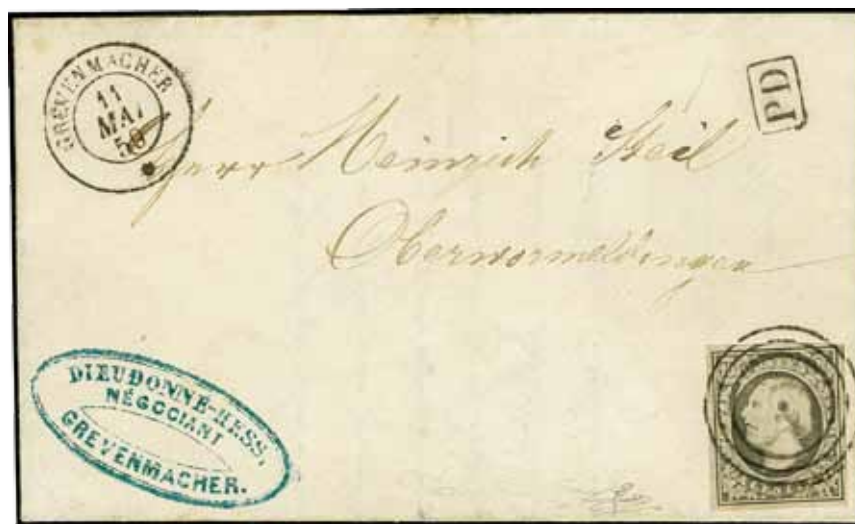 GREVENMACHER
11
MAI
59
PD
Herr Heinrich Steil
Oberwormeldingen
DIEUDONNE-HESS,
NÉGOCIANT
GREVENMACHER.